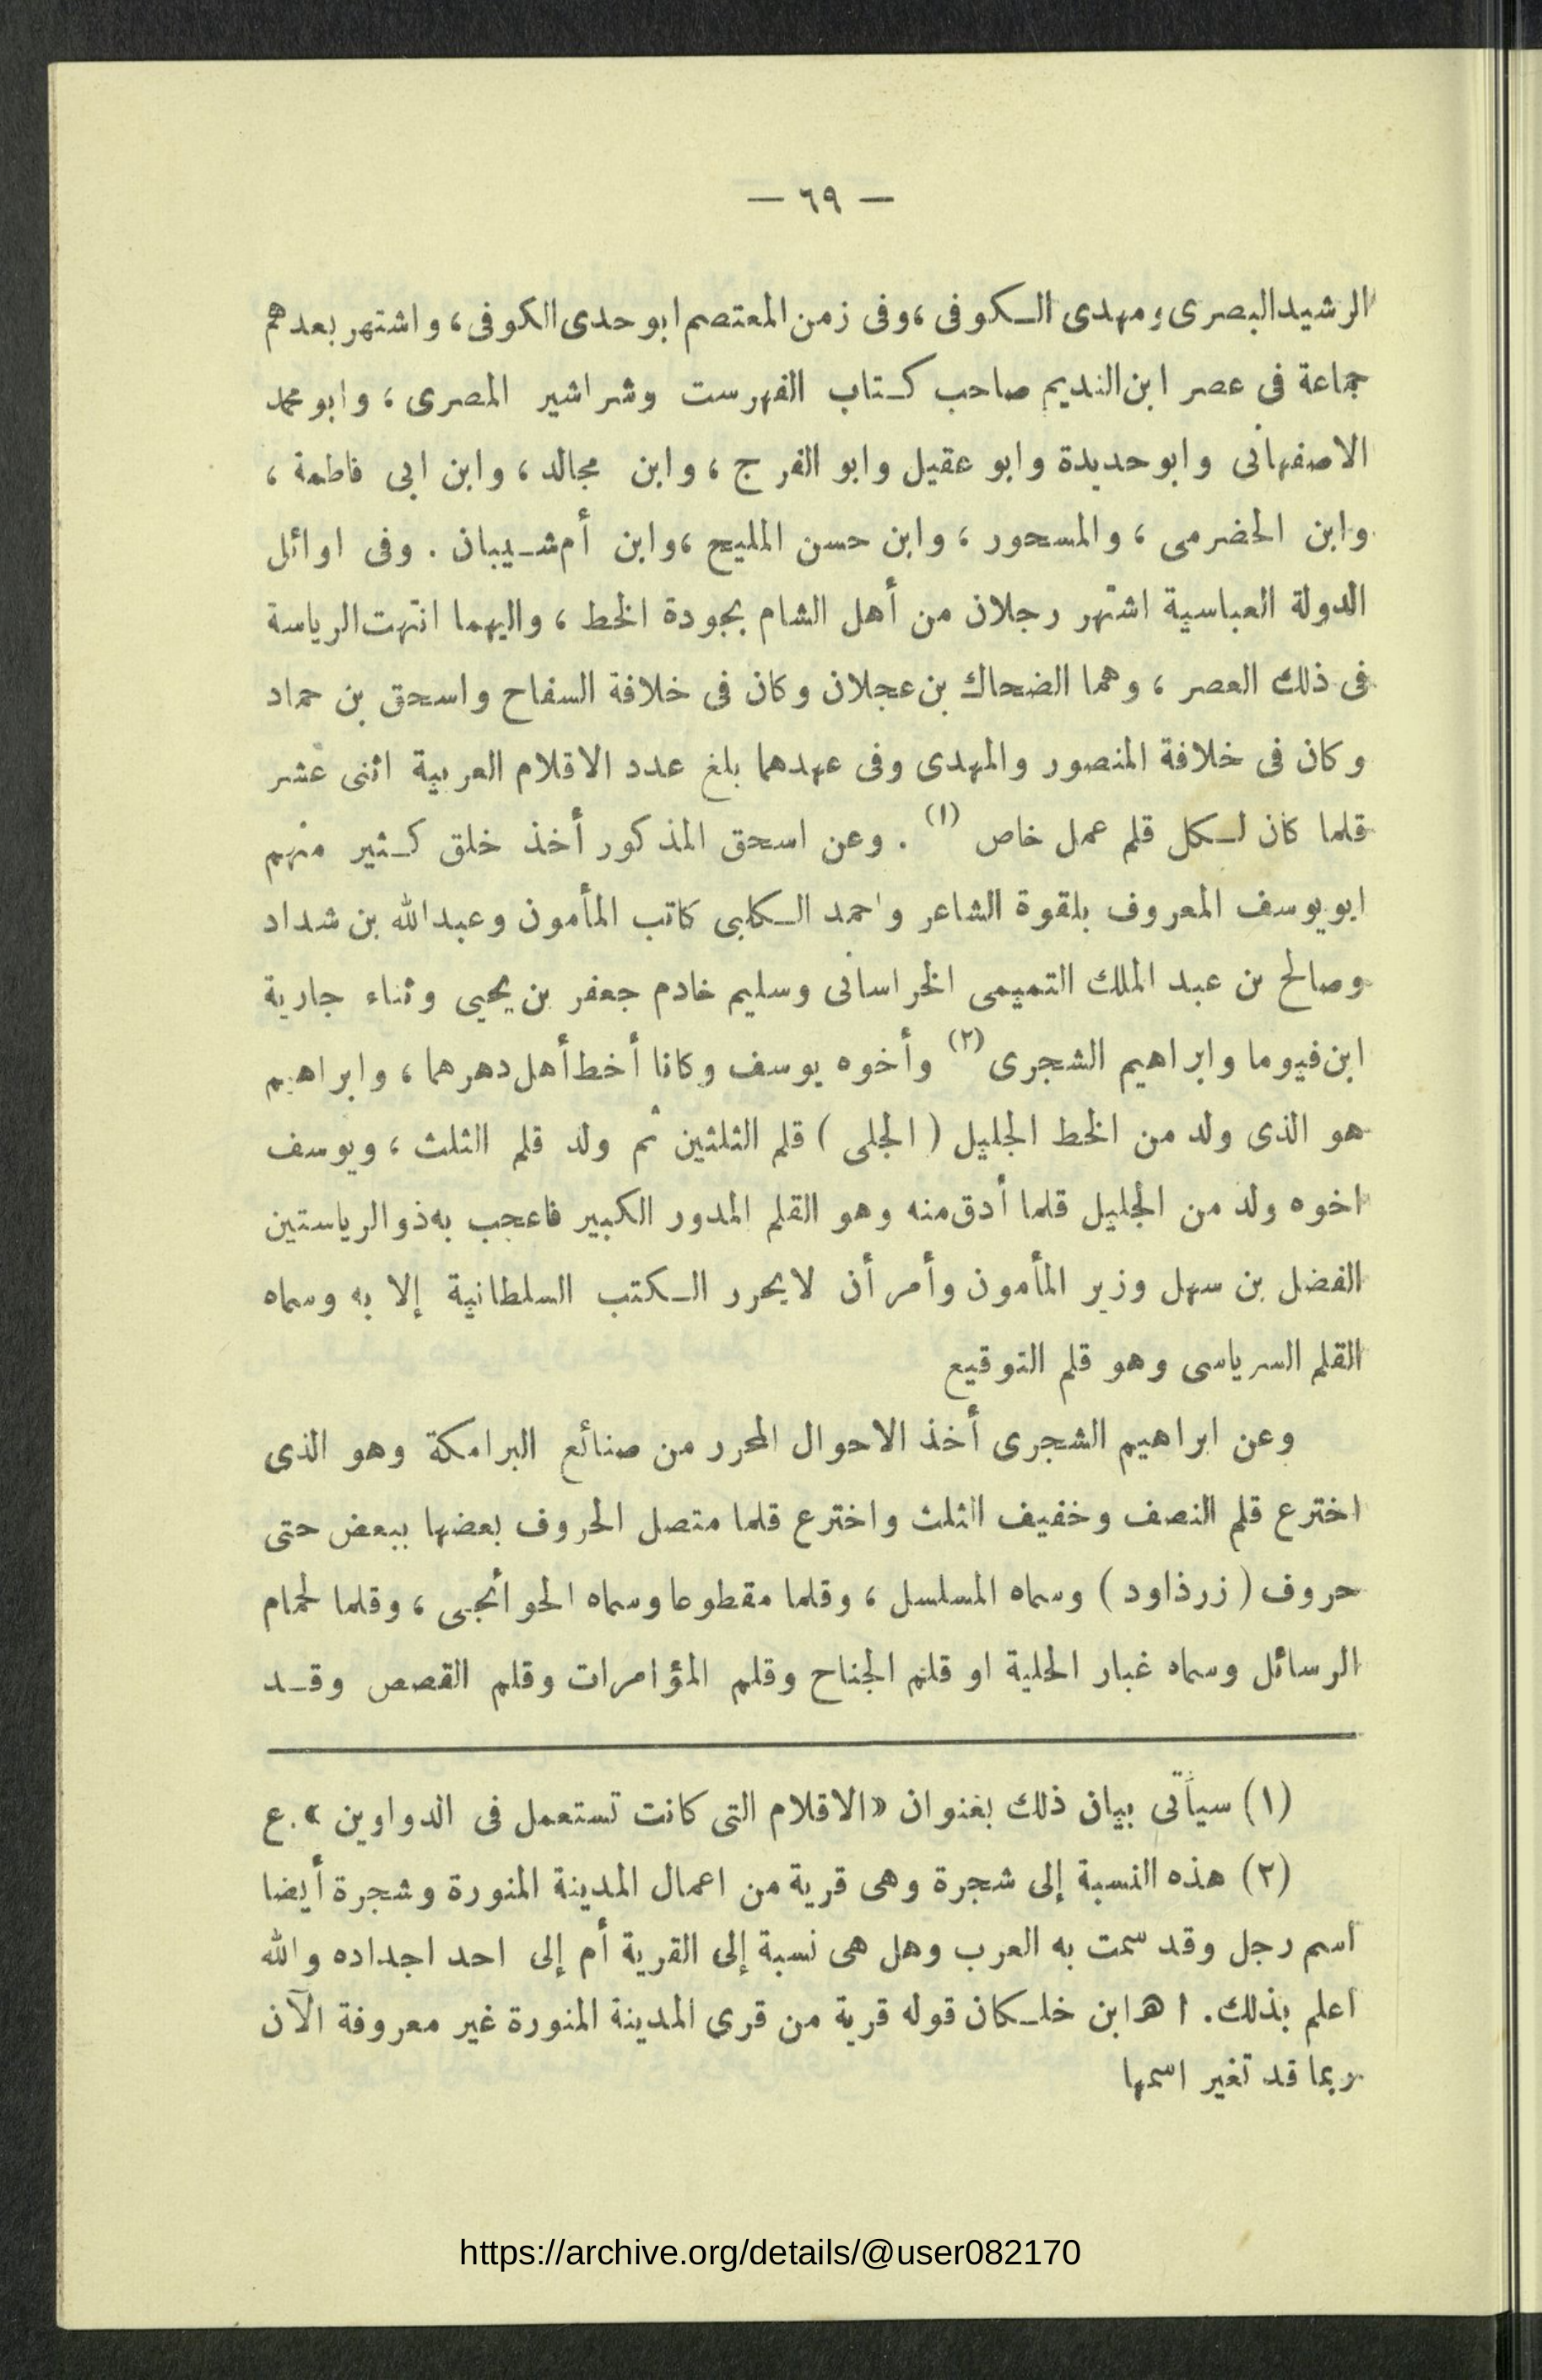 — ٦٩ —
الرشيد البصرى ومهدى الكوفى ، وفى زمن المعتصم ابو حدى الكوفى ، واشتهر بعدهم
جماعة فى عصر ابن النديم صاحب كتاب الفهرست وشراشير المصرى ، وابو محمد
الاصفهانى وابو حديدة وابو عقيل وابو الفرج ، وابن مجالد ، وابن ابى فاطمة ،
وابن الحضرمى ، والمسحور ، وابن حسن المليح ، وابن أم شيبان . وفى اوائل
الدولة العباسية اشتهر رجلان من أهل الشام بجودة الخط ، واليهما انتهت الرياسة
فى ذلك العصر ، وهما الضحاك بن عجلان وكان فى خلافة السفاح واسحق بن حماد
وكان فى خلافة المنصور والمهدى وفى عهدهما بلغ عدد الاقلام العربية اثنى عشر
قلما كان لكل قلم عمل خاص (١) . وعن اسحق المذكور أخذ خلق كثير منهم
ابو يوسف المعروف بلقوة الشاعر واحمد الكلبى كاتب المأمون وعبد الله بن شداد
وصالح بن عبد الملك التميمى الخراسانى وسليم خادم جعفر بن يحيى وثناء جارية
ابن فيوما وابراهيم الشجرى (٢) وأخوه يوسف وكانا أخط أهل دهرهما ، وابراهيم
هو الذى ولد من الخط الجليل ( الجلى ) قلم الثلثين ثم ولد قلم الثلث ، ويوسف
اخوه ولد من الجليل قلما أدق منه وهو القلم المدور الكبير فاعجب به ذو الرياستين
الفضل بن سهل وزير المأمون وأمر أن لا يحرر الكتب السلطانية إلا به وسماه
القلم السرياسى وهو قلم التوقيع
وعن ابراهيم الشجرى أخذ الاحوال المحرر من صنائع البرامكة وهو الذى
اخترع قلم النصف وخفيف الثلث واخترع قلما متصل الحروف بعضها ببعض حتى
حروف ( زرذاود ) وسماه المسلسل ، وقلما مقطوعا وسماه الحوائجى ، وقلما لحمام
الرسائل وسماه غبار الحلية او قلم الجناح وقلم المؤامرات وقلم القصص وقد
(١) سيأتى بيان ذلك بعنوان « الاقلام التى كانت تستعمل فى الدواوين » . ع
(٢) هذه النسبة إلى شجرة وهى قرية من اعمال المدينة المنورة وشجرة أيضا
اسم رجل وقد سمت به العرب وهل هى نسبة إلى القرية أم إلى احد اجداده والله
اعلم بذلك . اهـ ابن خلكان قوله قرية من قرى المدينة المنورة غير معروفة الآن
ربما قد تغير اسمها
https://archive.org/details/@user082170